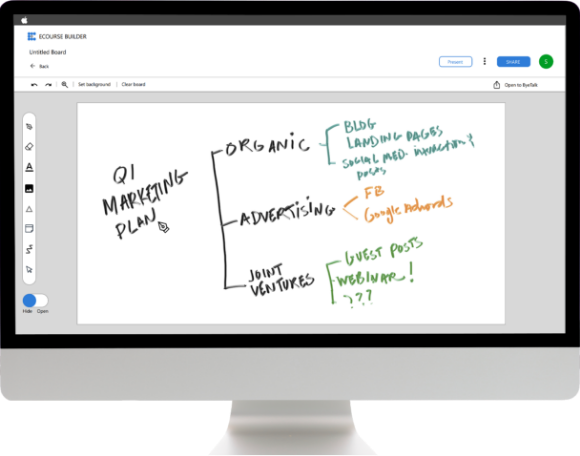 ECOURSE BUILDER
Untitled Board
Back
Present
SHARE
S
Set background
Clear board
Open to ByeTalk
Q1
MARKETING
PLAN
ORGANIC
BLOG
LANDING PAGES
SOCIAL MED. interactions &
posts
ADVERTISING
FB
Google Adwords
JOINT
VENTURES
GUEST POSTS
WEBINAR!
???
Hide
Open